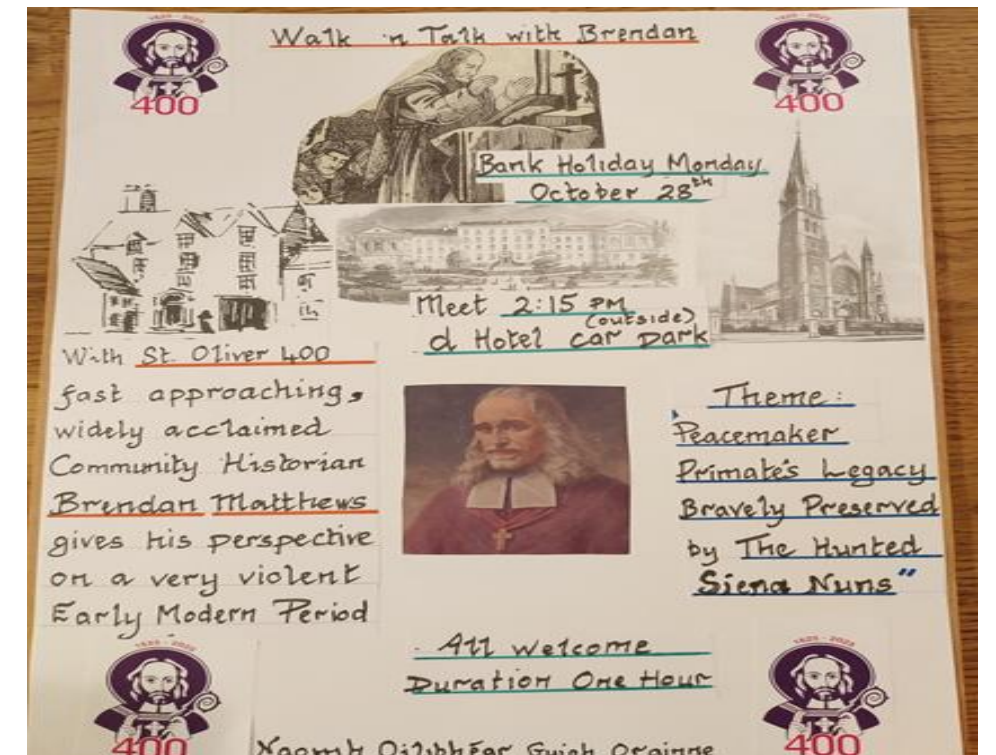 1625 - 2025
400
1625 - 2025
400
Walk 'n Talk with Brendan
Bank Holiday Monday
October 28th
Meet 2:15 PM
(outside)
d Hotel car park
With St. Oliver 400
fast approaching,
widely acclaimed
Community Historian
Brendan Matthews
gives his perspective
on a very violent
Early Modern Period
Theme:
Peacemaker
Primate's Legacy
Bravely Preserved
by The Hunted
Siena Nuns"
All welcome
Duration One Hour
1625 - 2025
400
1625 - 2025
400
Naomh Oilibhéar Guigh Orainne